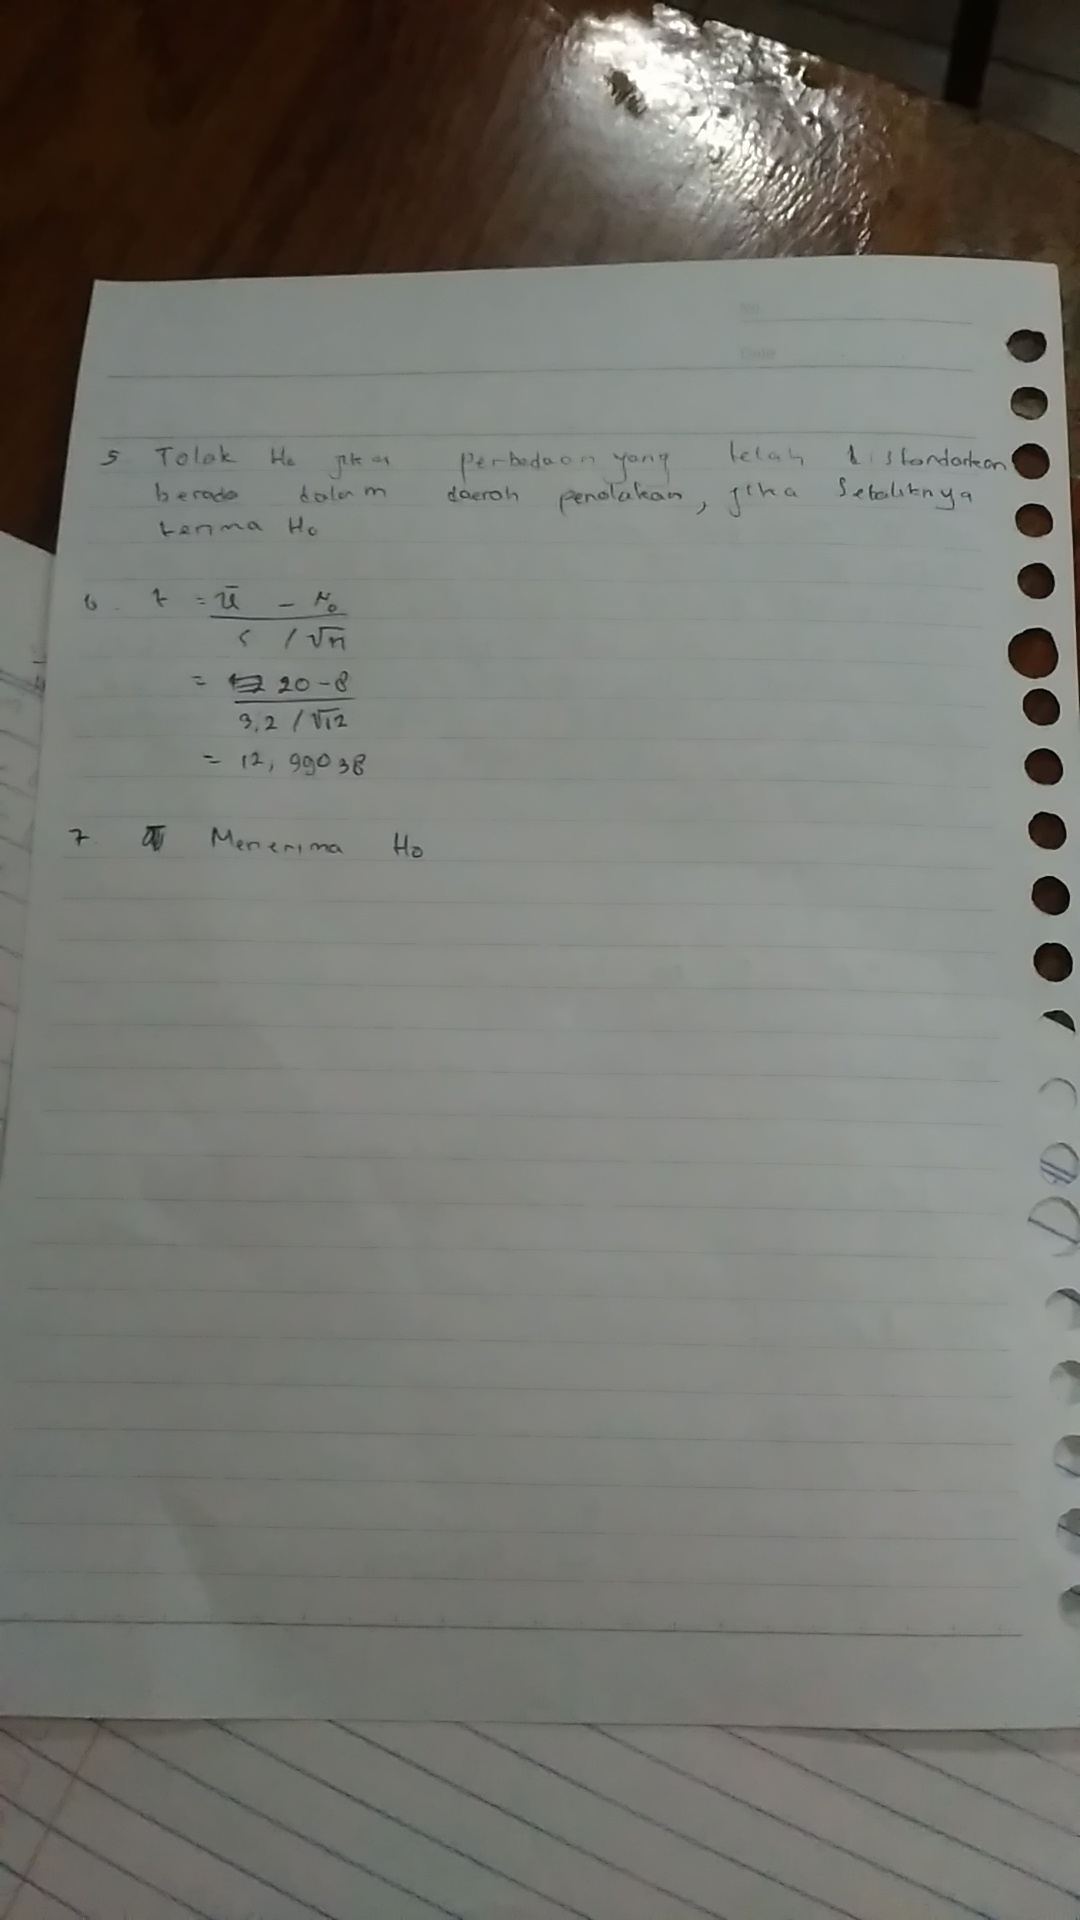 No
Date
5 Tolak Ho jika perbedaan yang telah distandarkan
berada dalam daerah penolakan, jika sebaliknya
terima Ho
6. t = x̄ - μ₀
s / √n
= 20 - 8
3,2 / √12
= 12,99038
7. Menerima Ho